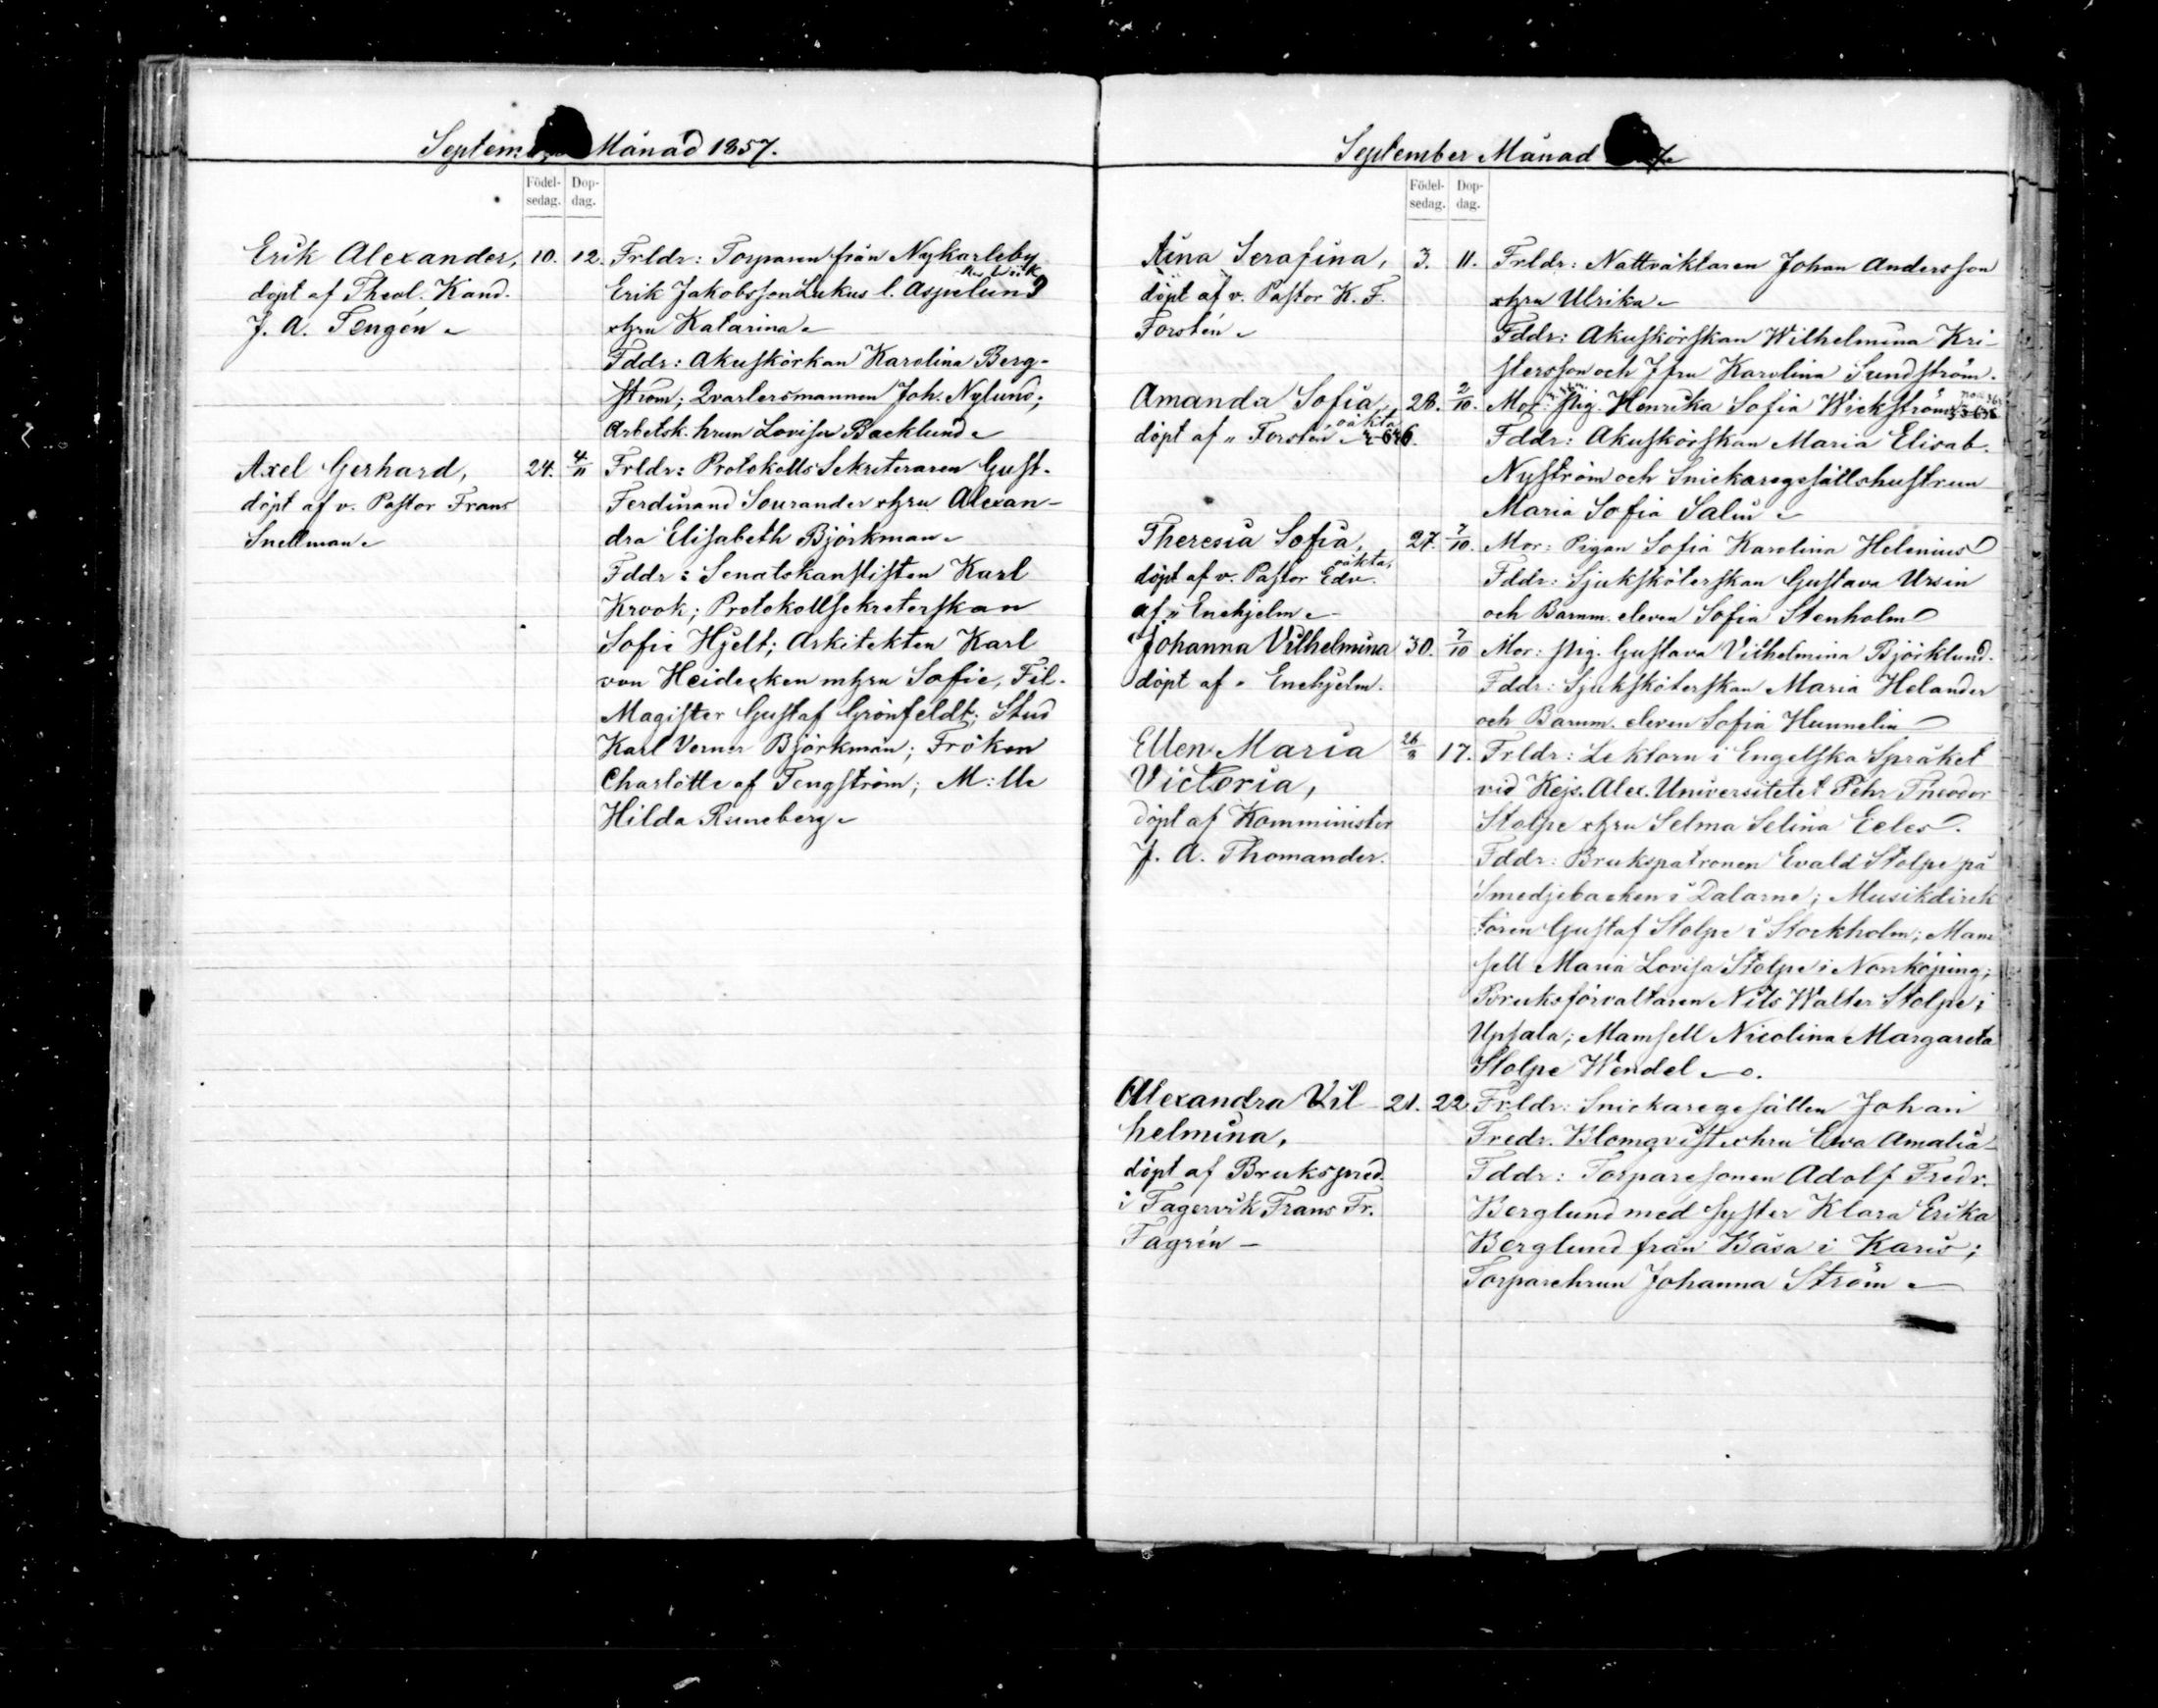 Septem Månad 1857.
Födel-
sedag.
Dop-
dag.
Erik Alexander, 10. 12. Frldr: Torparen från Nykarleby
döpt af Theol. Kand. Erik Jakobsson Lukus l. Aspelund
J. A. Tengén xhru Katarina
Fddr: Akuskörkan Karolina Berg-
ström; Qvartersmannen Joh. Nylund;
Arbetsk. hrun Lovisa Backlund
Axel Gerhard, 24. 4/11 Frldr: Protokolls Sekreteraren Gust.
döpt af v. Pastor Frans Ferdinand Sourander xhru Alexan-
Snellman dra Elisabeth Björkman
Fddr: Senatskanslisten Karl
Krook; Protokollsekreterskan
Sofie Hjelt; Arkitekten Karl
von Heideken mhru Sofie, Fil.
Magister Gustaf Grönfeldt; Stud
Karl Verner Björkman; Fröken
Charlotte af Tengström; M:lle
Hilda Runeberg
September Månad 7
Födel-
sedag.
Dop-
dag.
Aina Serafina, 3. 11. Frldr: Nattväktaren Johan Andersson
döpt af v. Pastor K. F. xhru Ulrika
Forstén Fddr: Akuskörskan Wilhelmina Kri-
stersson och Jfru Karolina Sundström.
Amanda Sofia, 28. 2/10. Mor: Pig. Henrika Sofia Wickström
oäkta
döpt af „ Forstén Fddr: Akuskörskan Maria Elisab.
Nyström och Snickaregesällshustrun
Maria Sofia Salin
Theresia Sofia, 27. 7/10. Mor: Pigan Sofia Karolina Helenius
oäkta,
döpt af v. Pastor Edv. Fddr: Sjuksköterskan Gustava Ursin
af „ Enehjelm och Barnm. eleven Sofia Stenholm
Johanna Vilhelmina 30. 7/10 Mor: Pig. Gustava Vilhelmina Björklund.
döpt af „ Enehjelm. Fddr: Sjuksköterskan Maria Helander
och Barnm. eleven Sofia Hunnelin
Ellen Maria 26/8 17. Frldr: Lektorn i Engelska Språket
Victoria, vid Kejs. Alex. Universitetet Pehr Theodor
döpt af Komminister Stolpe xhru Selma Selina Eeles.
J. A. Thomander. Fddr: Brukspatronen Evald Stolpe på
Smedjebacken i Dalarne; Musikdirek
tören Gustaf Stolpe i Stockholm; Mam
sell Maria Lovisa Stolpe i Norrköping;
Bruksförvaltaren Nils Walter Stolpe i
Upsala; Mamsell Nicolina Margareta
Stolpe Wendel
Alexandra Vil 21. 22. Frldr: Snickaregesällen Johan
helmina, Fredr. Blomqvist xhru Ewa Amalia
döpt af Brukspred. Fddr: Torparesonen Adolf Fredr.
i Fagervik Frans Fr. Berglund med syster Klara Erika
Fagrén Berglund från Båsa i Karis;
Torparehrun Johanna Ström